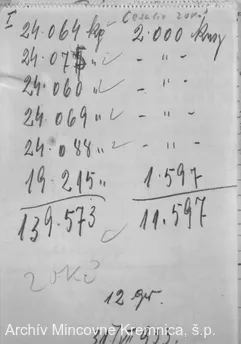 I
24·064 kg 2.000 kusy
24·075 " - " -
24·060 " - " -
24·069 " - " -
24·088 " - " -
19·215 " 1·597
139·573 11.597
20 Kč
12 gr.
Archív Mincovne Kremnica, š.p.